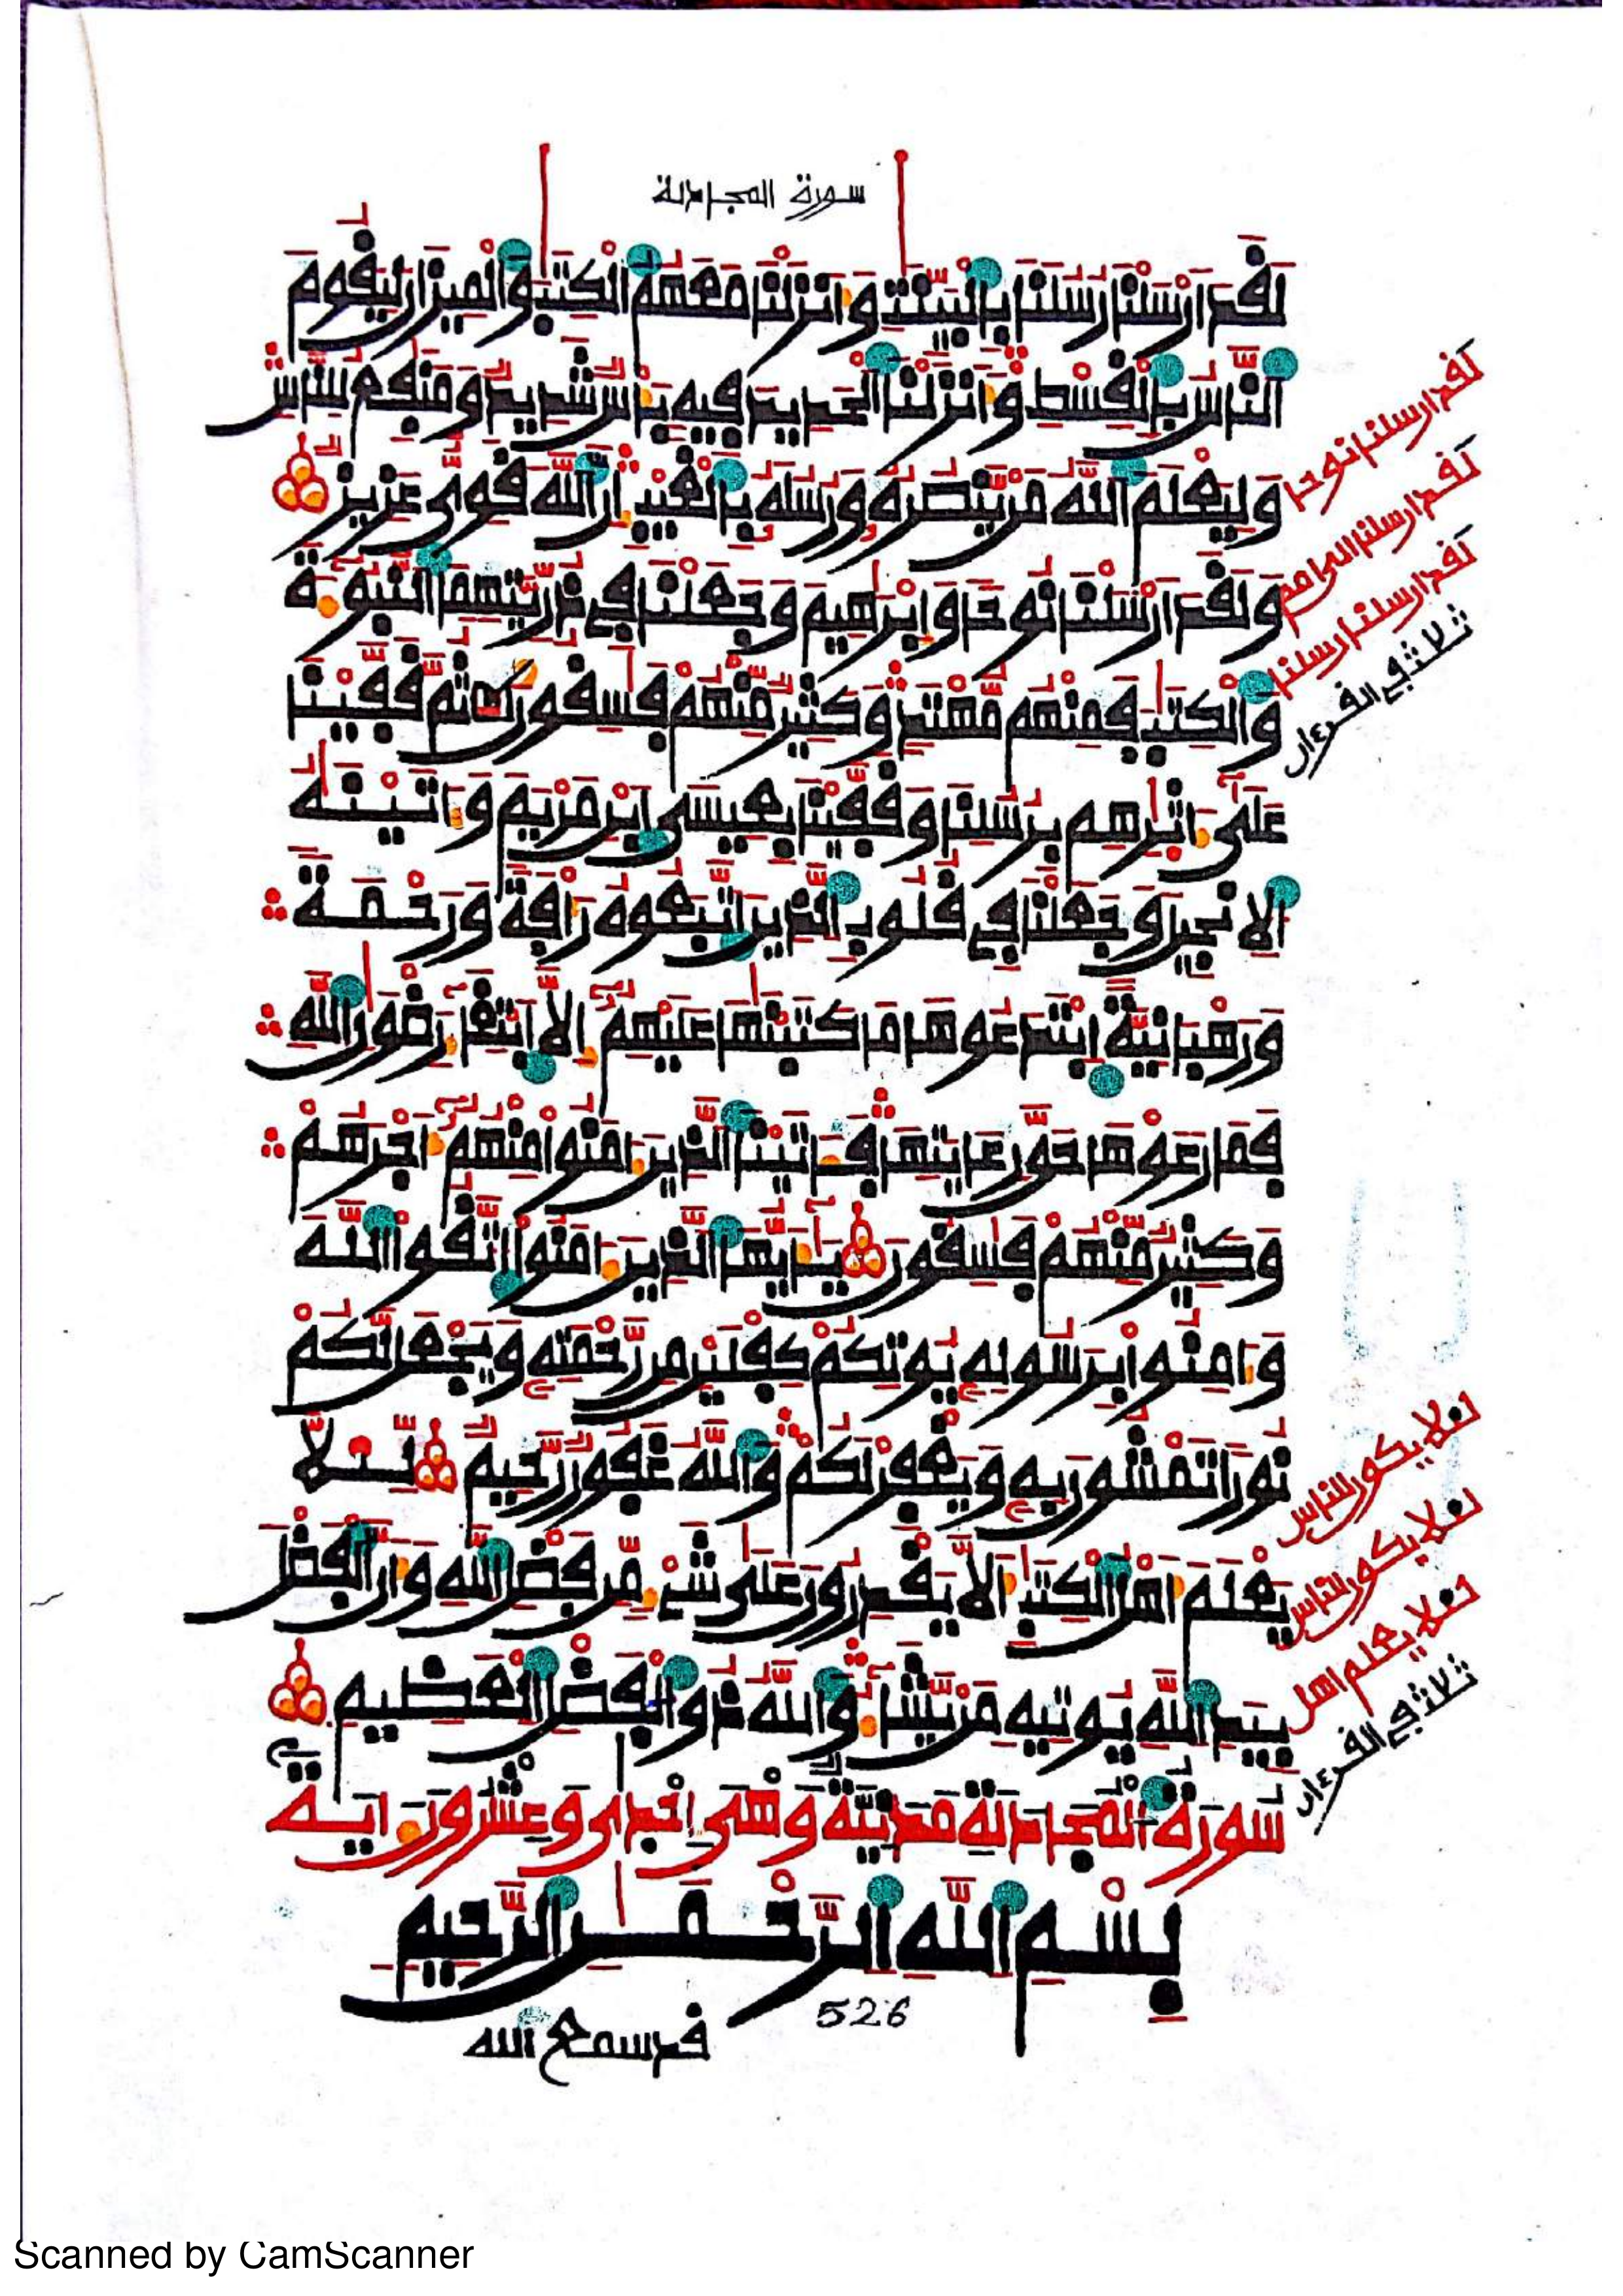 سورة المجادلة
لَقَدَ ارْسَلْنَا رُسُلَنَا بِالْبَيِّنَٰتِ وَأَنزَلْنَا مَعَهُمُ الْكِتَٰبَ وَالْمِيزَانَ لِيَقُومَ
النَّاسُ بِالْقِسْطِ وَأَنزَلْنَا الْحَدِيدَ فِيهِ بَأْسٌ شَدِيدٌ وَمَنَٰفِعُ لِلنَّاسِ
وَلِيَعْلَمَ اللَّهُ مَنْ يَّنصُرُهُ وَرُسُلَهُ بِالْغَيْبِ إِنَّ اللَّهَ قَوِىٌّ عَزِيزٌ
وَلَقَدَ ارْسَلْنَا نُوحاً وَإِبْرَٰهِيمَ وَجَعَلْنَا فِى ذُرِّيَّتِهِمَا النُّبُوءَةَ
وَالْكِتَٰبَ فَمِنْهُم مُّهْتَدٍ وَكَثِيرٌ مِّنْهُمْ فَٰسِقُونَ ثُمَّ قَفَّيْنَا
عَلَىٰ ءَاثَٰرِهِم بِرُسُلِنَا وَقَفَّيْنَا بِعِيسَى ابْنِ مَرْيَمَ وَءَاتَيْنَٰهُ
الْإِنجِيلَ وَجَعَلْنَا فِى قُلُوبِ الَّذِينَ اتَّبَعُوهُ رَأْفَةً وَرَحْمَةً
وَرَهْبَانِيَّةً ابْتَدَعُوهَا مَا كَتَبْنَٰهَا عَلَيْهِمُ إِلَّا ابْتِغَاءَ رِضْوَٰنِ اللَّهِ
فَمَا رَعَوْهَا حَقَّ رِعَايَتِهَا فَـَٔاتَيْنَا الَّذِينَ ءَامَنُوا مِنْهُمُ أَجْرَهُمْ
وَكَثِيرٌ مِّنْهُمْ فَٰسِقُونَ يَٰأَيُّهَا الَّذِينَ ءَامَنُوا اتَّقُوا اللَّهَ
وَءَامِنُوا بِرَسُولِهِ يُوتِكُمْ كِفْلَيْنِ مِن رَّحْمَتِهِ وَيَجْعَل لَّكُمْ
نُوراً تَمْشُونَ بِهِ وَيَغْفِرْ لَكُمْ وَاللَّهُ غَفُورٌ رَّحِيمٌ لِّئَلَّا
يَعْلَمَ أَهْلُ الْكِتَٰبِ أَلَّا يَقْدِرُونَ عَلَىٰ شَىْءٍ مِّن فَضْلِ اللَّهِ وَأَنَّ الْفَضْلَ
بِيَدِ اللَّهِ يُوتِيهِ مَنْ يَّشَاءُ وَاللَّهُ ذُو الْفَضْلِ الْعَظِيمِ
سُورَةُ الْمُجَادَلَةِ مَدَنِيَّةٌ وَهْىَ إِحْدَىٰ وَعِشْرُونَ ءَايَة
بِسْمِ اللَّهِ الرَّحْمَٰنِ الرَّحِيمِ
526
قد سمع الله
لقد ارسلنا نوحا
لقد ارسلنا الى امم
لقد ارسلنا رسلنا
ثلاث في القرءان
لئلا يكون للناس
لئلا يكون للناس
لئلا يعلم اهل
ثلاث في القرءان
Scanned by CamScanner